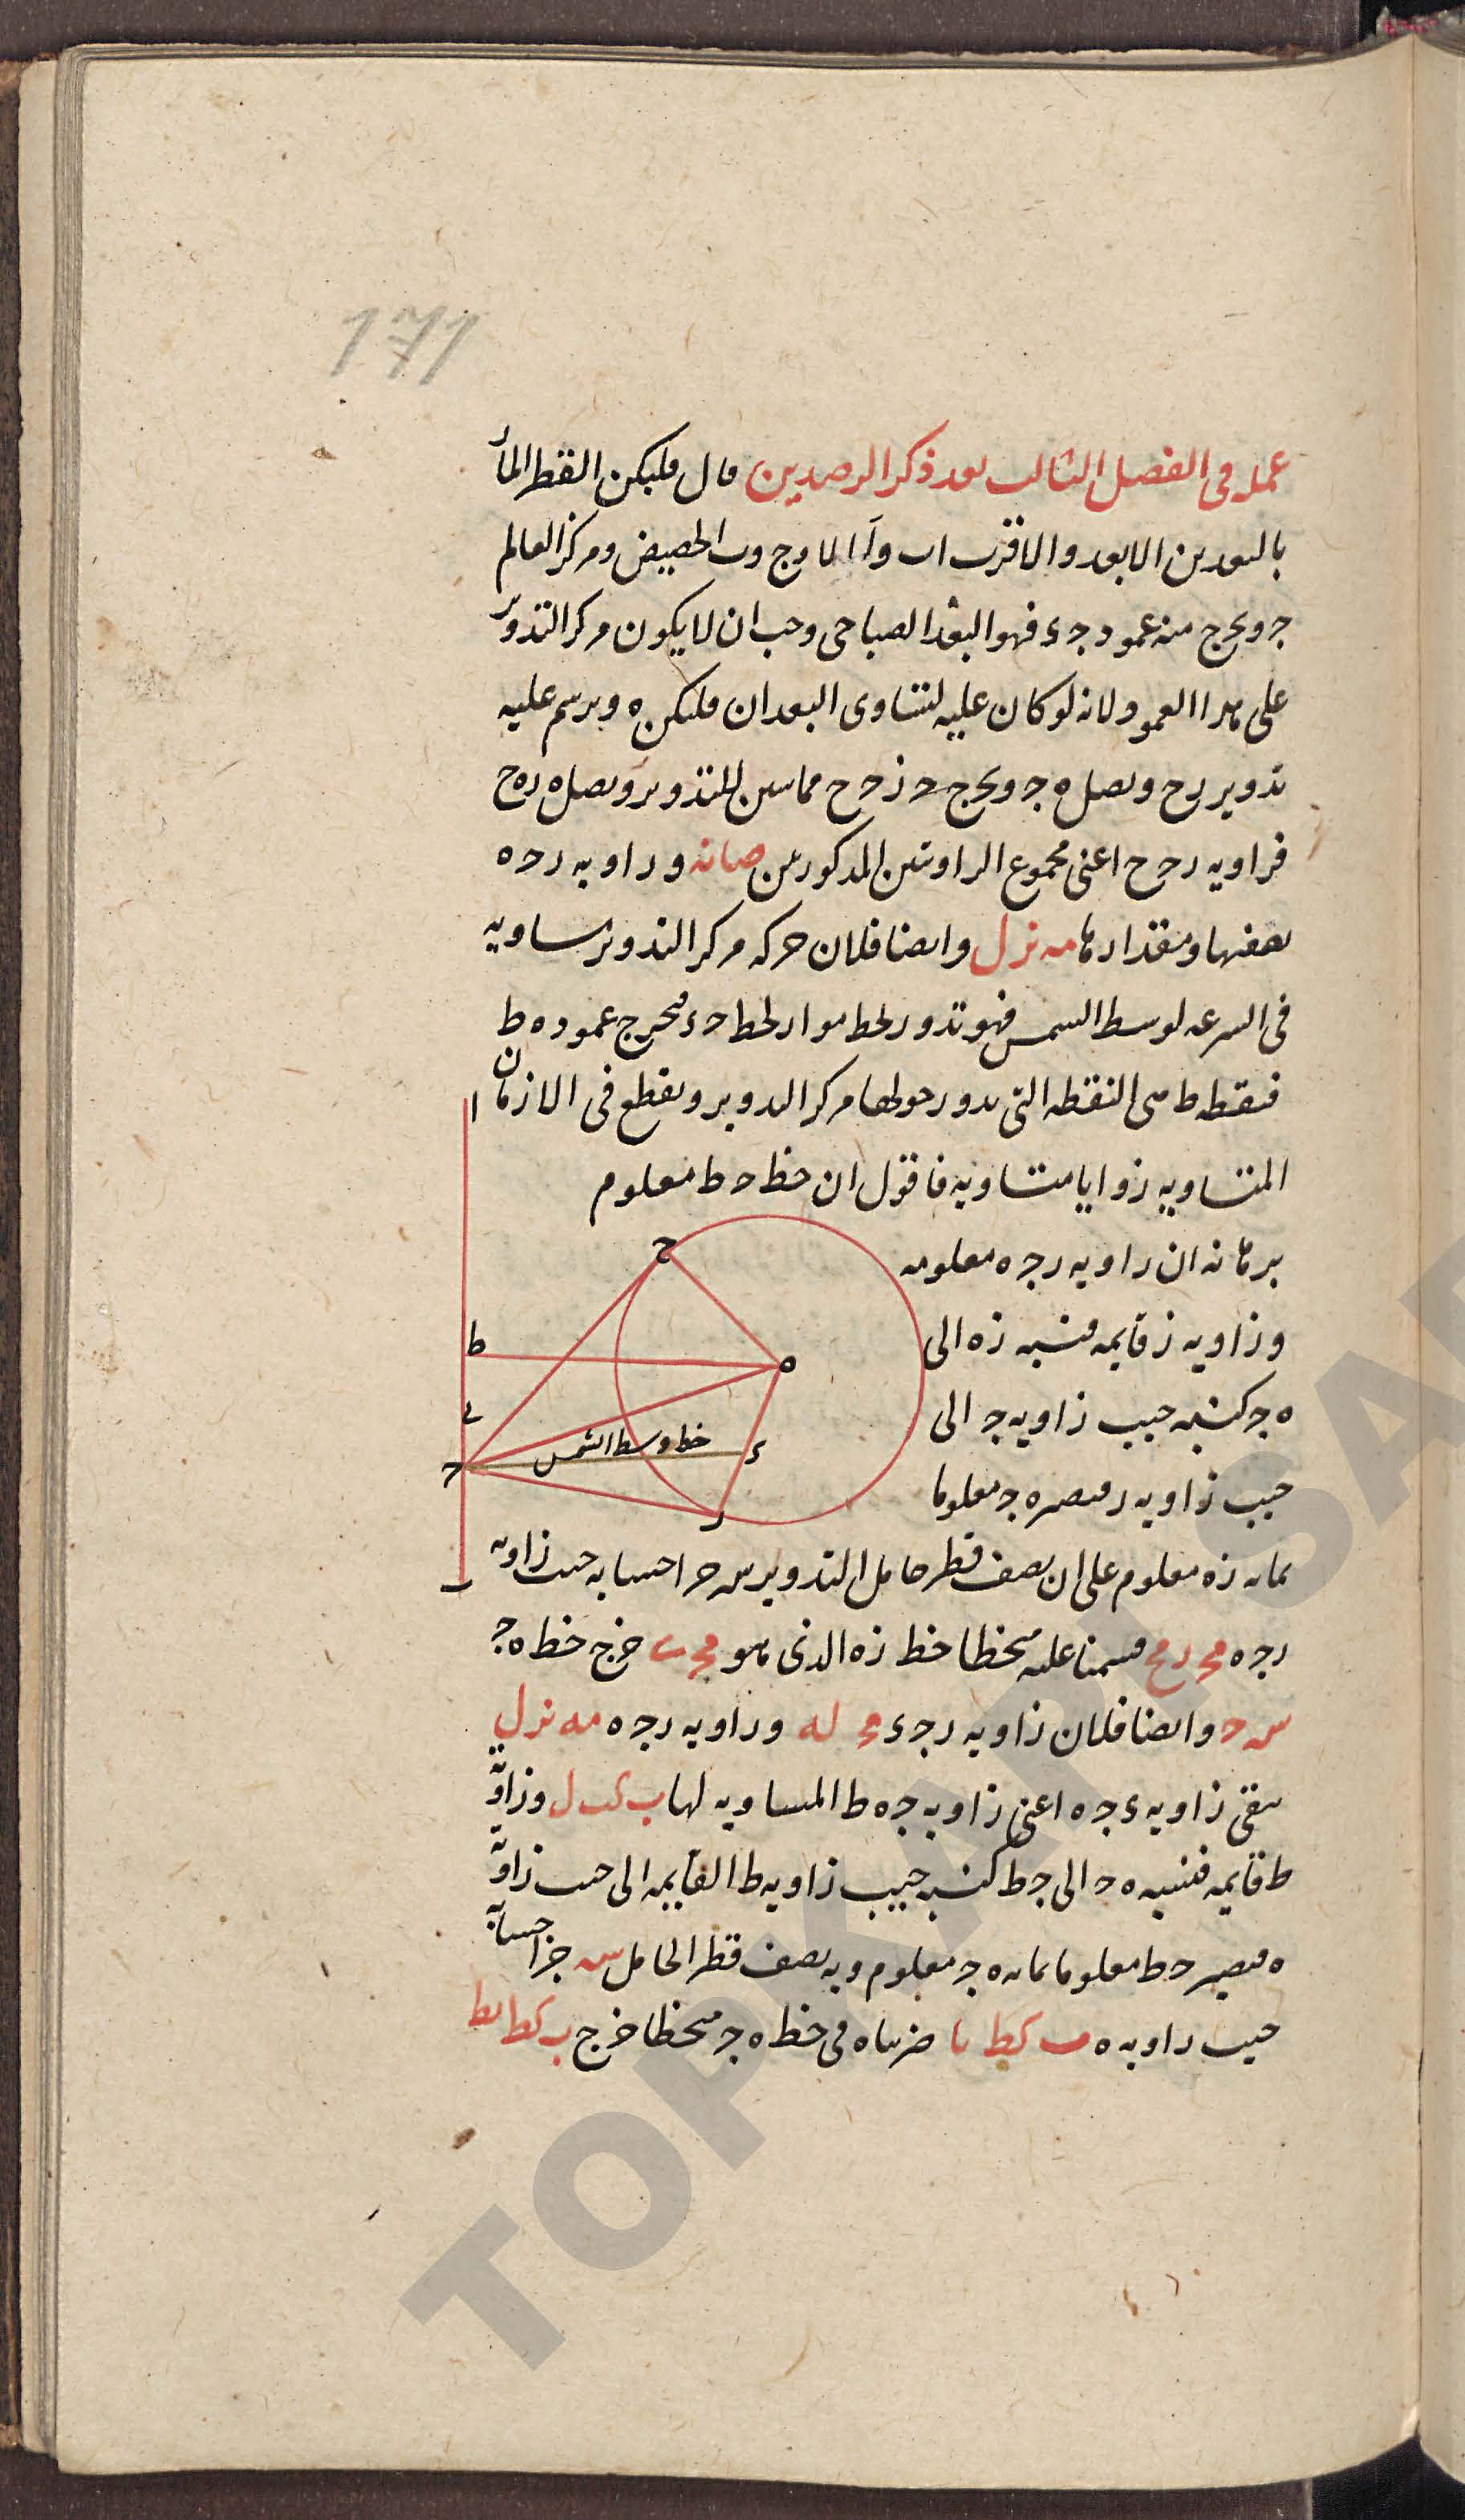 171
عمله فى الفصل الثالث بعد ذكر الرصدين قال فليكن القطر المار
بالبعدين الابعد والاقرب اب وآ الاوج وب الحضيض ومركز العالم
جـ ويخرج منه عمود جـ ء فهو البعد الصباحى وجب ان لا يكون مركز التدوير
على هذا العمود لانه لو كان عليه لتساوى البعدان فليكن ه ويرسم عليه
تدوير زح ونصل ه جـ ويخرج جـ ز جـ ح مماسين للتدوير ونصل ه ز ه ح
فزاويه ز جـ ح اعنى مجموع الزاويتين المذكورتين صا نه وزاويه ز جـ ه
نصفها ومقدارها مه نز ل وايضا فلان حركه مركز التدوير مساويه
فى السرعه لوسط الشمس فهو تدور بخط مواز لخط جـ ء فيخرج عمود ه ط
فنقطه ط هى النقطه التى يدور حولها مركز التدوير ويقطع فى الازمان
المتساويه زوايا متساويه فاقول ان خط جـ ط معلوم
برهانه ان زاويه ز جـ ه معلومه
وزاويه ز قايمه فنسبه زه الى
ه جـ كنسبه جيب زاويه جـ الى
جيب زاويه ز فيصير ه جـ معلوما
ا
ح
ط
ه
ى
خط وسط الشمس
ء
جـ
ز
ب
بمابه زه معلوم على ان نصف قطر حامل التدوير س جزا حسابه جيب زاويه
ز جـ ه مج ز مح قسمنا عليه منحطا خط زه الذى هو مج ى خرج خط ه جـ
س جـ وايضا فلان زاويه ز جـ ء مج له وزاويه ز جـ ه مه نز ل
يبقى زاويه ء جـ ه اعنى زاويه جـ ه ط المساويه لها ب كب ل وزاويه
ط قايمه فنسبه ه جـ الى جـ ط كنسبه جيب زاويه ط القايمه الى جيب زاويه
ه فيصير جـ ط معلوما بمابه ه جـ معلوم وبه نصف قطر الحامل س جزا حسابه
جيب زاويه ه ب كط يا ضربناه فى خط ه جـ منحطا خرج ب كط يط